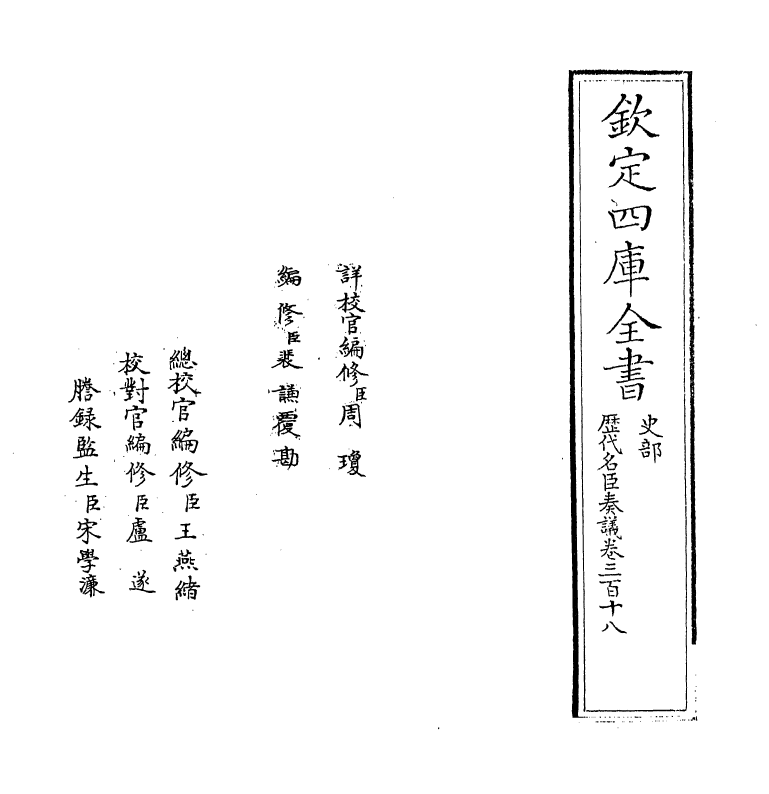 欽定四庫全書
史部
歷代名臣奏議卷三百十八
詳校官編修臣周瓊
編修臣裴謙覆勘
總校官編修臣王燕緒
校對官編修臣盧遂
謄錄監生臣宋學濂